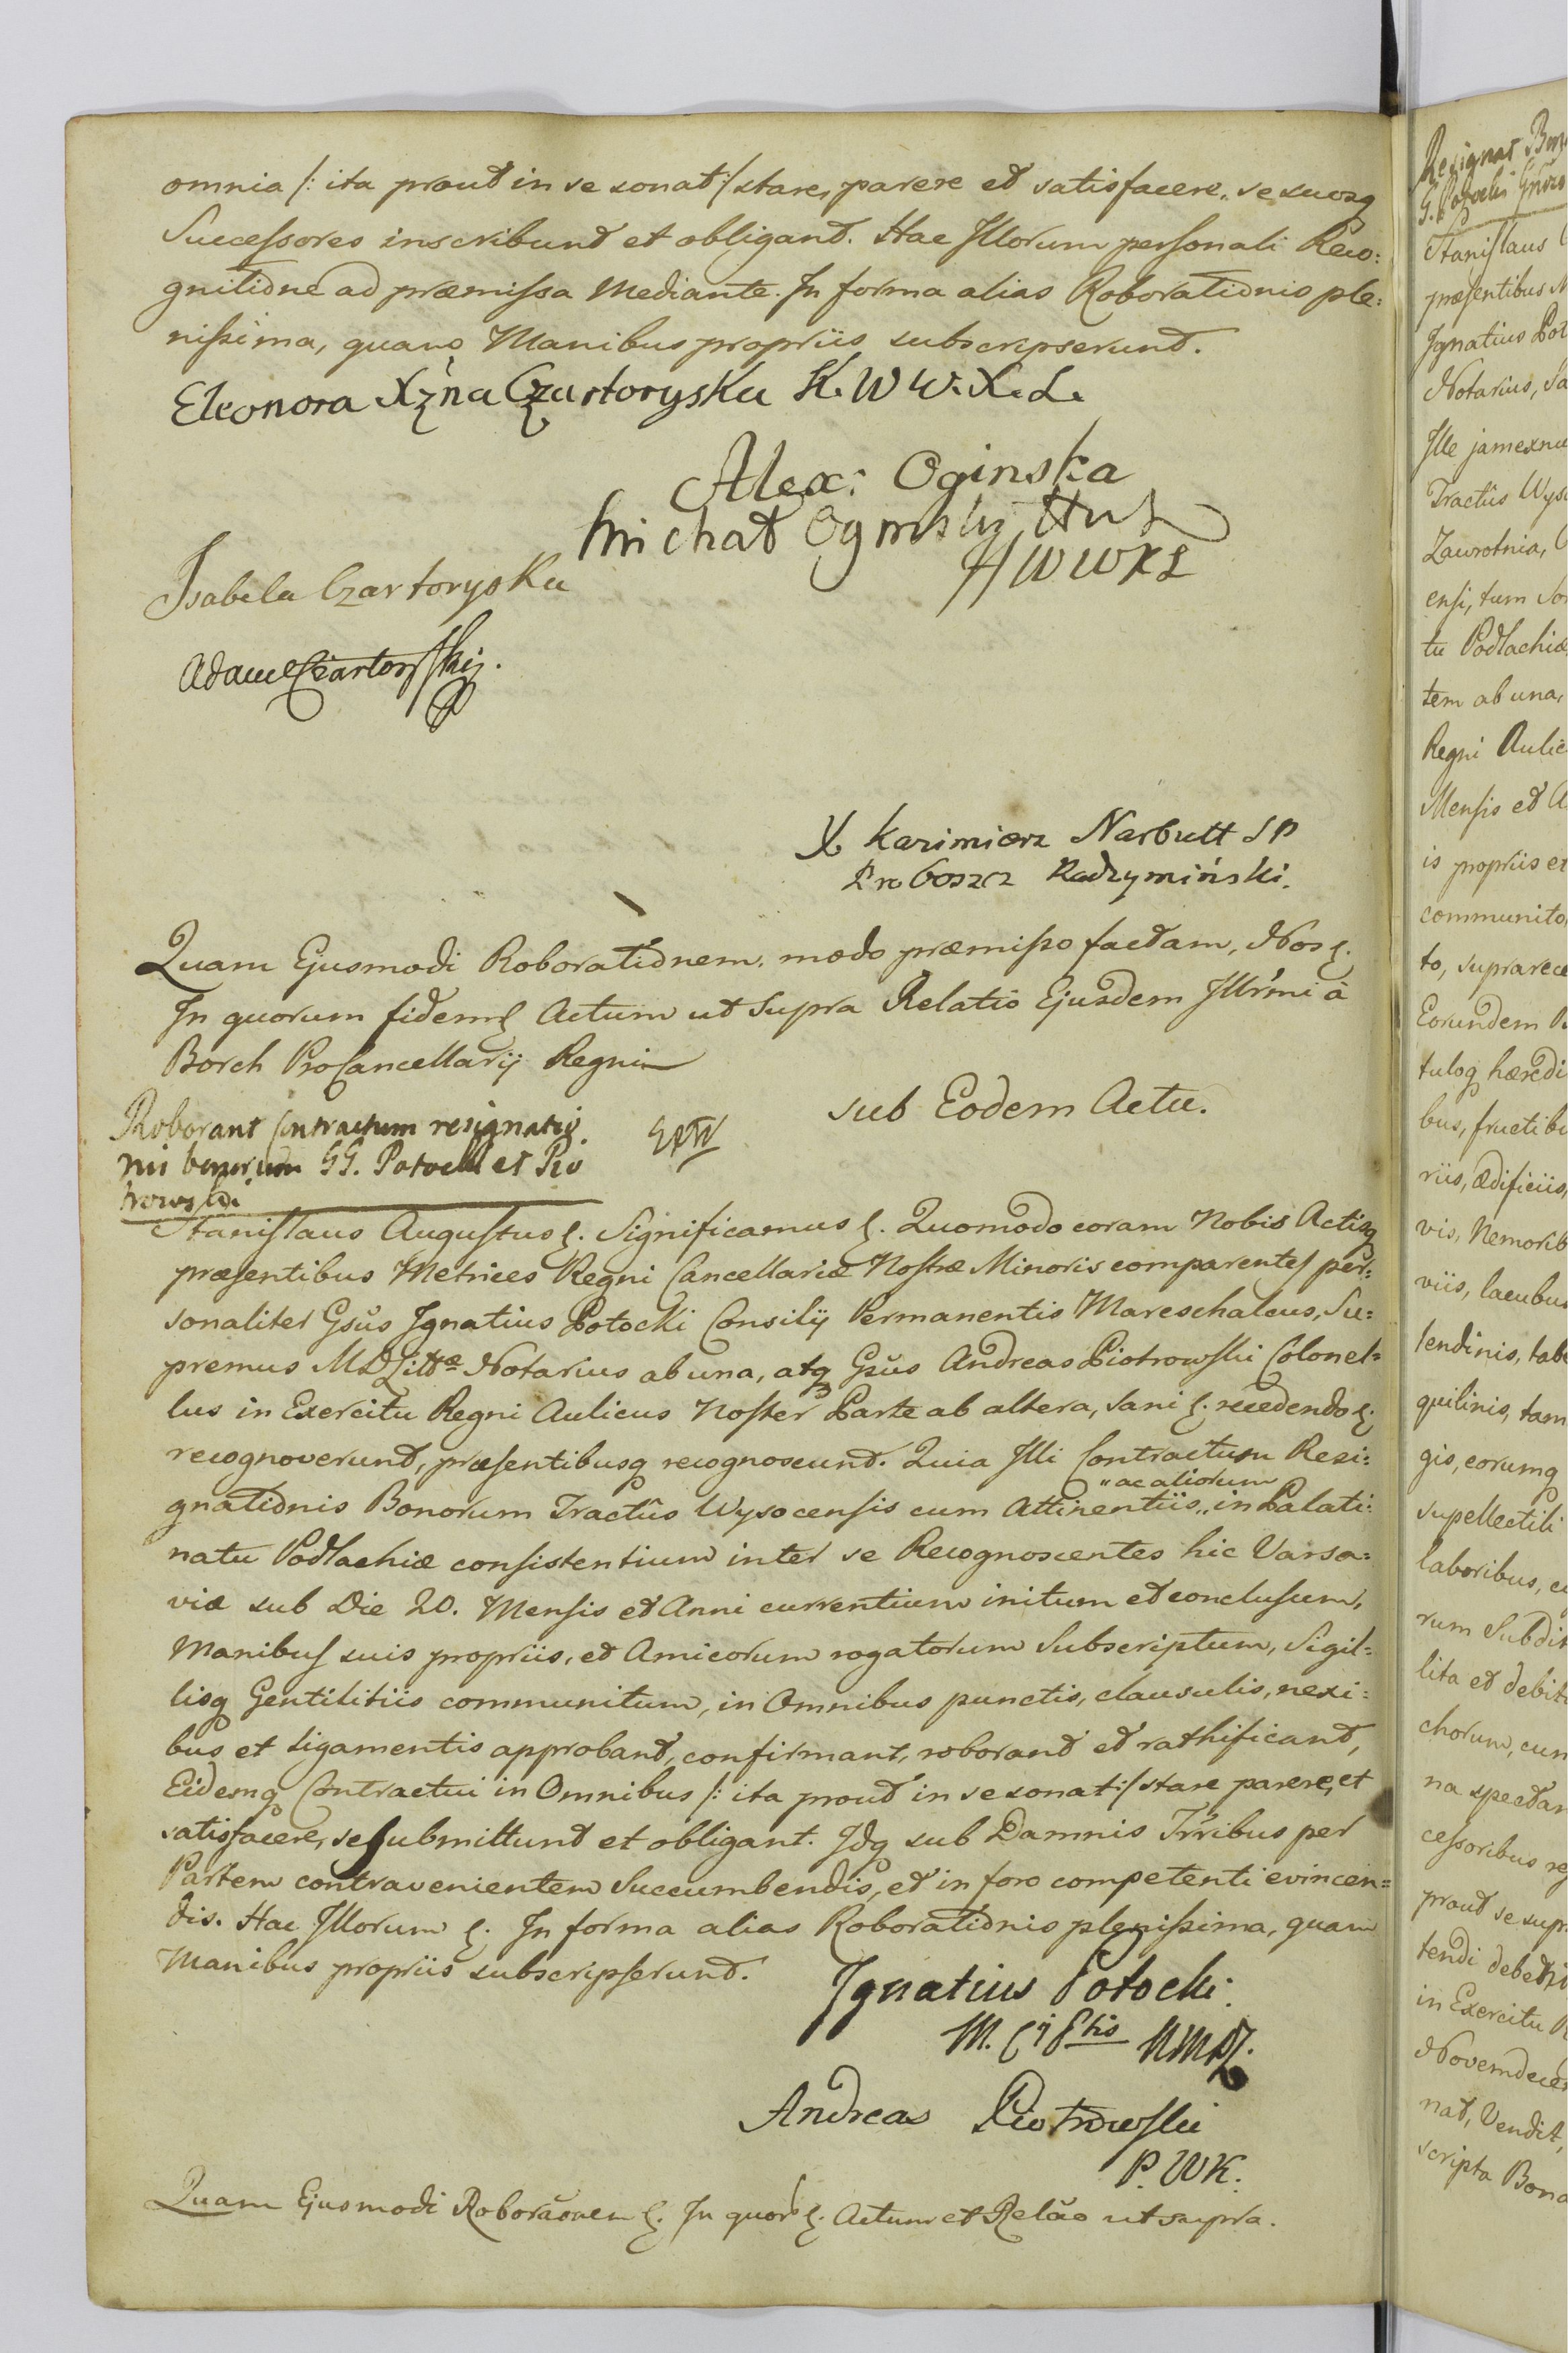 omnia /: ita prout in se sonat :/ stare, parere et satisfacere, se suosq
Successores inscribunt et obligant. Hac Illorum personali Reco:
gnitiõne ad præmissa Mediante. In forma alias Roboratiõnis ple:
nissima, quam Manibus propriis subscripserunt.
Eleonora Xżna Czartoryska K. W W. X. L.
Alex: Oginska
Michał Oginski
HWWXL
Isabela Czartoryska
Adam Czartoryski.
X Kazimierz Narbutt SP
Proboszcz Radzyminski.
Quam Ejusmodi Roboratiõnem, modo præmisso factam, Nos &.
In quorum fidem & Actum ut Supra Relatio Ejusdem Illr̃mi à
Borch ProCancellarij Regni
sub Eodem Actu.
Roborant Contractum resignatio
nis bonorum GG. Potocki et Pio
trowski
Stanislaus Augustus &. Significamus &. Quomodo coram Nobis Actisq
præsentibus Metrices Regni Cancellariæ Nostræ Minoris comparentes per:
sonaliter Gsŭs Ignatius Potocki Consilij Permanentis Mareschalcus, Su:
premus MDLittæ Notarius ab una, atq Gsŭs Andreas Piotrowski Colonel:
lus in Exercitu Regni Aulicus Noster Parte ab altera, Sani &. recedendo &.
recognoverunt, præsentibusq recognoscunt. Quia Illi Contractum Resi:
gnatiõnis Bonorum Tractûs Wysocensis cum Attinentiis „ac aliorum„ in Palati:
natu Podlachiæ consistentium inter se Recognoscentes hic Varsa:
viæ sub Die 20. Mensis et Anni currentium initum et conclusum,
Manibus suis propriis, et Amicorum rogatorum Subscriptum, Sigil:
lisq Gentilitiis communitum, in Omnibus punctis, clausulis, nexi:
bus et ligamentis approbant, confirmant, roborant et rathificant,
Eidemq Contractui in Omnibus /: ita prout in se sonat :/ stare parere, et
satisfacere, se submittunt et obligant. Idq sub Damnis Trr̃ibus per
Partem contravenientem Succumbendis, et in foro competenti evincen:
dis. Hac Illorum &. In forma alias Roboratiõnis plenissima, quam
Manibus propriis subscripserunt.
Ignatius Potocki.
Andreas Piotrowski
P. WK.
Quam Ejusmodi Roborãonem &. In quor &. Actum et Relão ut supra.
Resignat
G. Potocki
Stanislaus
præsentibus
Ignatius Pot
Notarius, Sa
Ille jam
Tractûs Wyso
Zawrotnia,
ensi, tum
tu Podlachiæ
tem ab una,
Regni Aulic
Mensis et A
is propriis et
communito
to, suprarece
Eorundem
tuloq hæredi
bus, fructib
riis, ædificiis,
vis, Nemorib
viis, lacubus
tendinis, tab
quilinis, tam
gis, eorumq
supellectili
laboribus, cu
rum Subdit
lita et debit
chorum, cum
na spectan
cessoribus
prout se supr
tendi debet
in Exercitu
Novemdecem
nat, Vendit,
scripta Bona